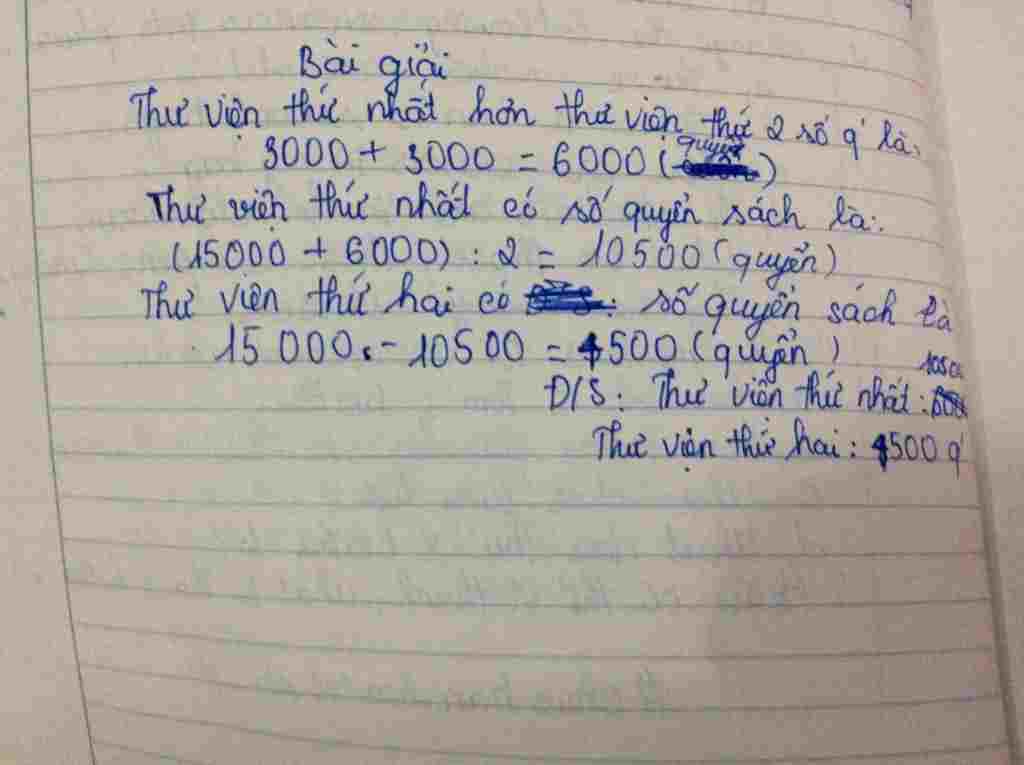 Bài giải
Thư viện thứ nhất hơn thư viện thứ 2 số q' là:
3000 + 3000 = 6000 (quyển)
Thư viện thứ nhất có số quyển sách là:
(15000 + 6000) : 2 = 10500 (quyển)
Thư viện thứ hai có : số quyển sách là
15 000 - 10500 = 4500 (quyển)
Đ/S: Thư viện thứ nhất :
Thư viện thứ hai : 4500 q'